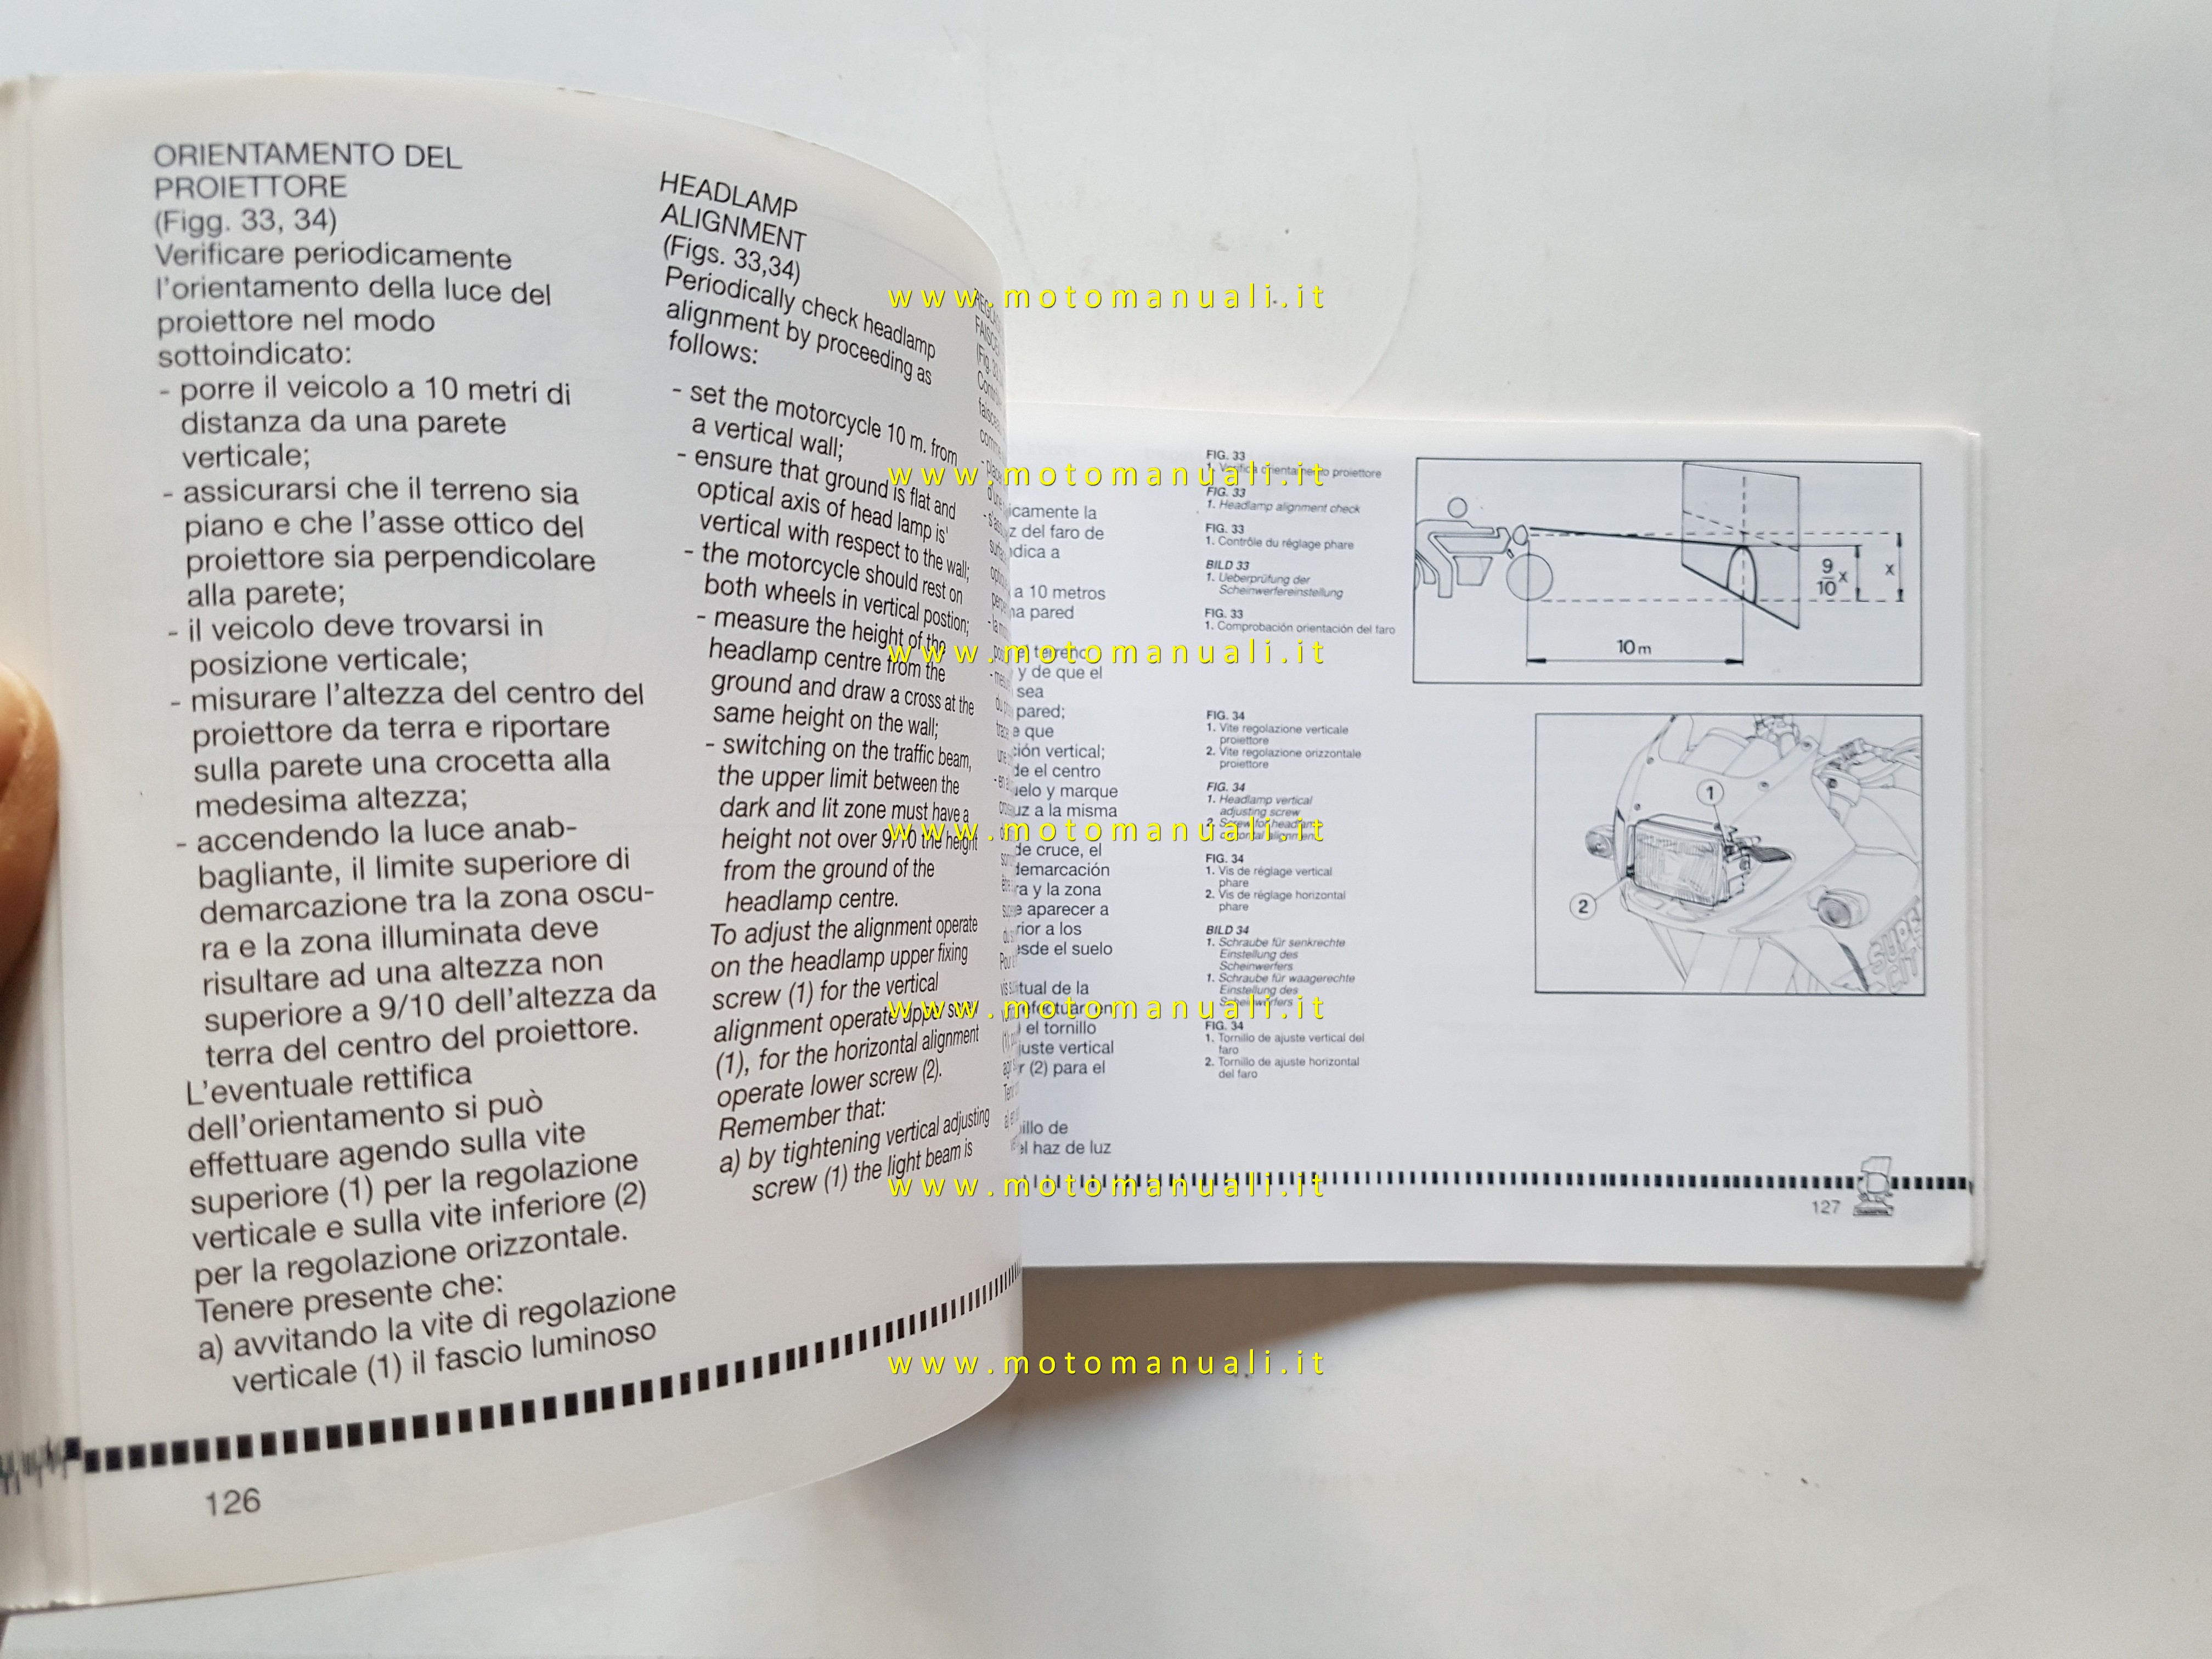 ORIENTAMENTO DEL
PROIETTORE
(Figg. 33, 34)
Verificare periodicamente
l'orientamento della luce del
proiettore nel modo
sottoindicato:
- porre il veicolo a 10 metri di
distanza da una parete
verticale;
- assicurarsi che il terreno sia
piano e che l'asse ottico del
proiettore sia perpendicolare
alla parete;
- il veicolo deve trovarsi in
posizione verticale;
- misurare l'altezza del centro del
proiettore da terra e riportare
sulla parete una crocetta alla
medesima altezza;
- accendendo la luce anab-
bagliante, il limite superiore di
demarcazione tra la zona oscu-
ra e la zona illuminata deve
risultare ad una altezza non
superiore a 9/10 dell'altezza da
terra del centro del proiettore.
L'eventuale rettifica
dell'orientamento si può
effettuare agendo sulla vite
superiore (1) per la regolazione
verticale e sulla vite inferiore (2)
per la regolazione orizzontale.
Tenere presente che:
a) avvitando la vite di regolazione
verticale (1) il fascio luminoso
126
HEADLAMP
ALIGNMENT
(Figs. 33,34)
Periodically check headlamp
alignment by proceeding as
follows:
- set the motorcycle 10 m. from
a vertical wall;
- ensure that ground is flat and
optical axis of head lamp is'
vertical with respect to the wall;
- the motorcycle should rest on
both wheels in vertical postion;
- measure the height of the
headlamp centre from the
ground and draw a cross at the
same height on the wall;
- switching on the traffic beam,
the upper limit between the
dark and lit zone must have a
height not over 9/10 the height
from the ground of the
headlamp centre.
To adjust the alignment operate
on the headlamp upper fixing
screw (1) for the vertical
alignment operate upper screw
(1), for the horizontal alignment
operate lower screw (2).
Remember that:
a) by tightening vertical adjusting
screw (1) the light beam is
la
del faro de
a
a 10 metros
pared
terreno
y de que el
sea
pared;
que
vertical;
el centro
y marque
a la misma
de cruce, el
demarcación
y la zona
aparecer a
a los
desde el suelo
de la
efectuar en
el tornillo
vertical
(2) para el
de
el haz de luz
FIG. 33
1. Verifica orientamento proiettore
FIG. 33
1. Headlamp alignment check
FIG. 33
1. Contrôle du réglage phare
BILD 33
1. Ueberprüfung der
Scheinwerfereinstellung
FIG. 33
1. Comprobación orientación del faro
FIG. 34
1. Vite regolazione verticale
proiettore
2. Vite regolazione orizzontale
proiettore
FIG. 34
1. Headlamp vertical
adjusting screw
2. Screw for headlamp
horizontal alignment
FIG. 34
1. Vis de réglage vertical
phare
2. Vis de réglage horizontal
phare
BILD 34
1. Schraube für senkrechte
Einstellung des
Scheinwerfers
1. Schraube für waagerechte
Einstellung des
Scheinwerfers
FIG. 34
1. Tornillo de ajuste vertical del
faro
2. Tornillo de ajuste horizontal
del faro
9/10 x
x
10 m
1
2
SUPER
CITY
127
www.motomanuali.it
www.motomanuali.it
www.motomanuali.it
www.motomanuali.it
www.motomanuali.it
www.motomanuali.it
www.motomanuali.it